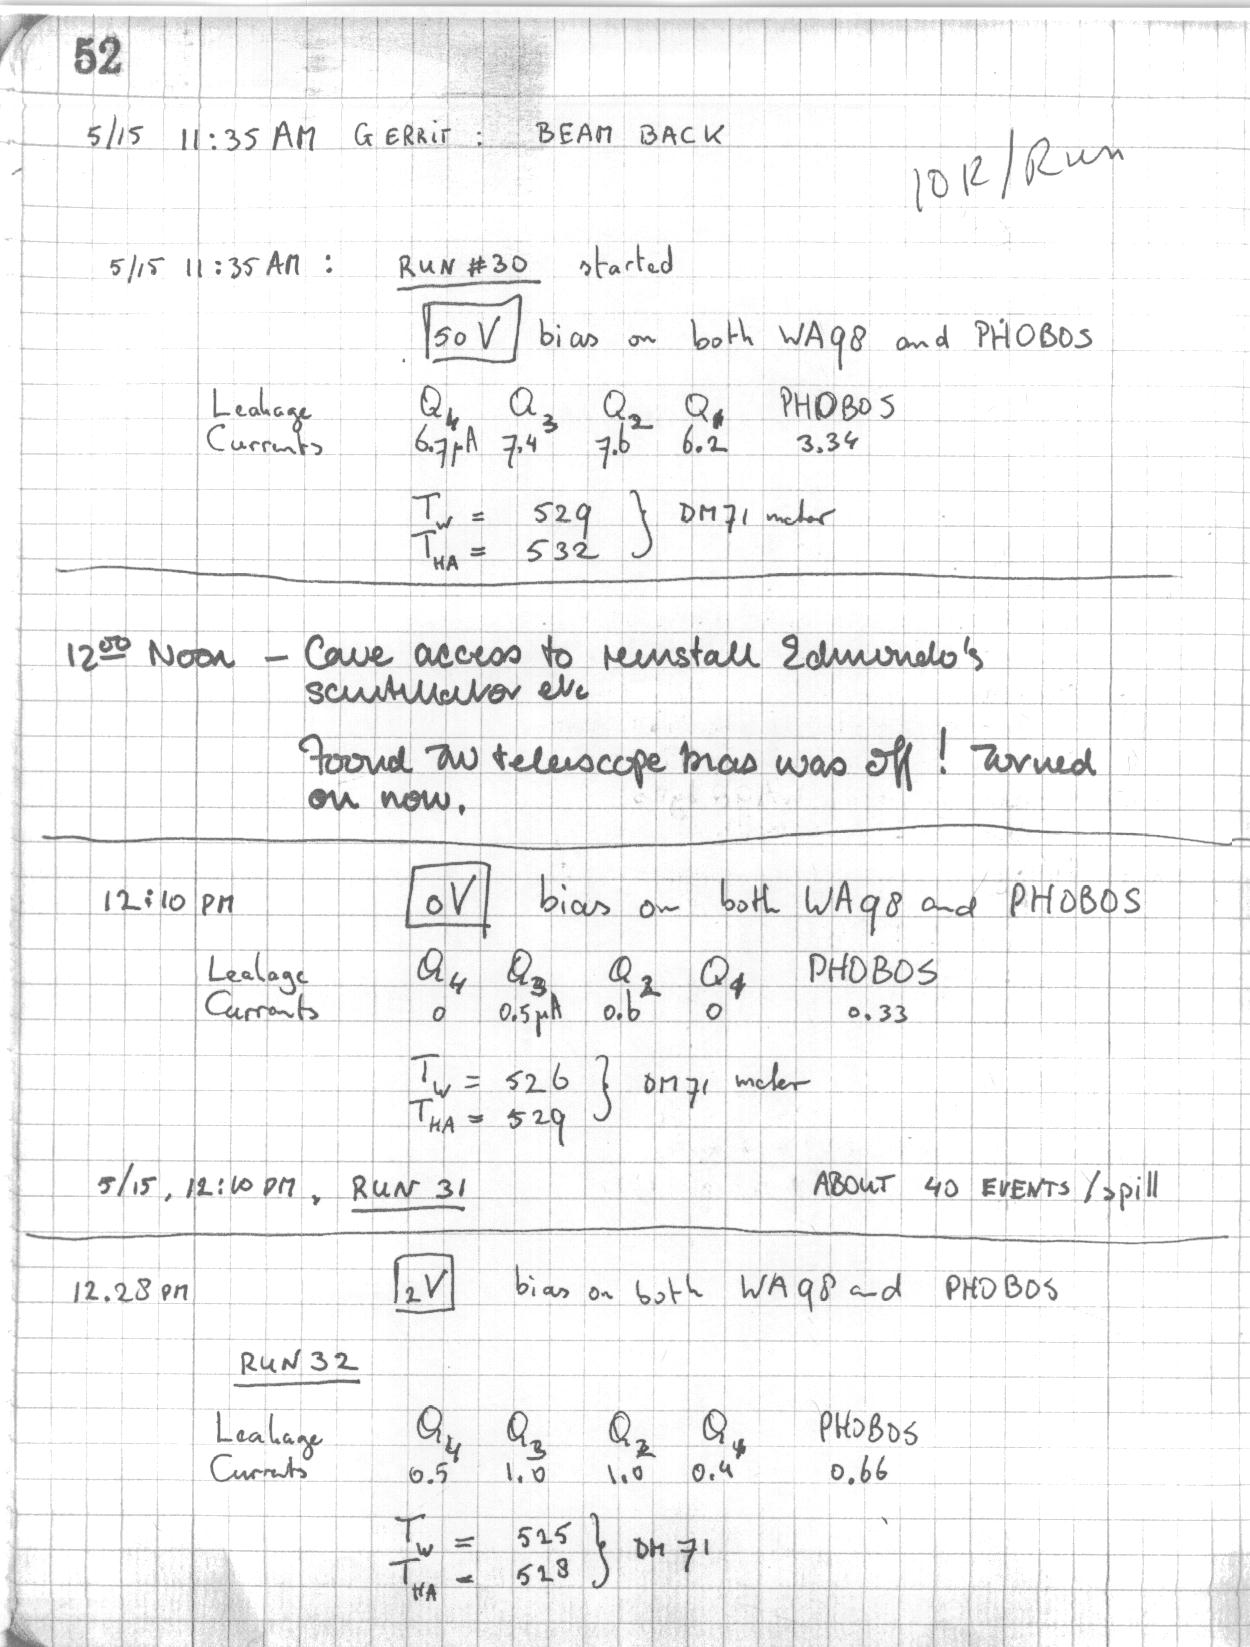 52
5/15 11:35 AM GERRIT : BEAM BACK
10K/Run
5/15 11:35 AM : RUN #30 started
50 V bias on both WA98 and PHOBOS
Leakage Q4 Q3 Q2 Q1 PHOBOS
Currents 6.7µA 7.4 7.6 6.2 3.34
TW = 529 } DM71 meter
THA = 532
12:00 Noon - Cave access to reinstall Edmundo's
scintillator etc
Found telescope bias was off! Turned
on now.
12:10 PM 0V bias on both WA98 and PHOBOS
Leakage Q4 Q3 Q2 Q1 PHOBOS
Currents 0 0.5µA 0.6 0 0.33
TW = 526 } DM71 meter
THA = 529
5/15, 12:10 PM, RUN 31 ABOUT 40 EVENTS/spill
12.28 PM 2V bias on both WA98 and PHOBOS
RUN 32
Leakage Q4 Q3 Q2 Q1 PHOBOS
Currents 0.5 1.0 1.0 0.4 0.66
TW = 525 } DM 71
THA = 528